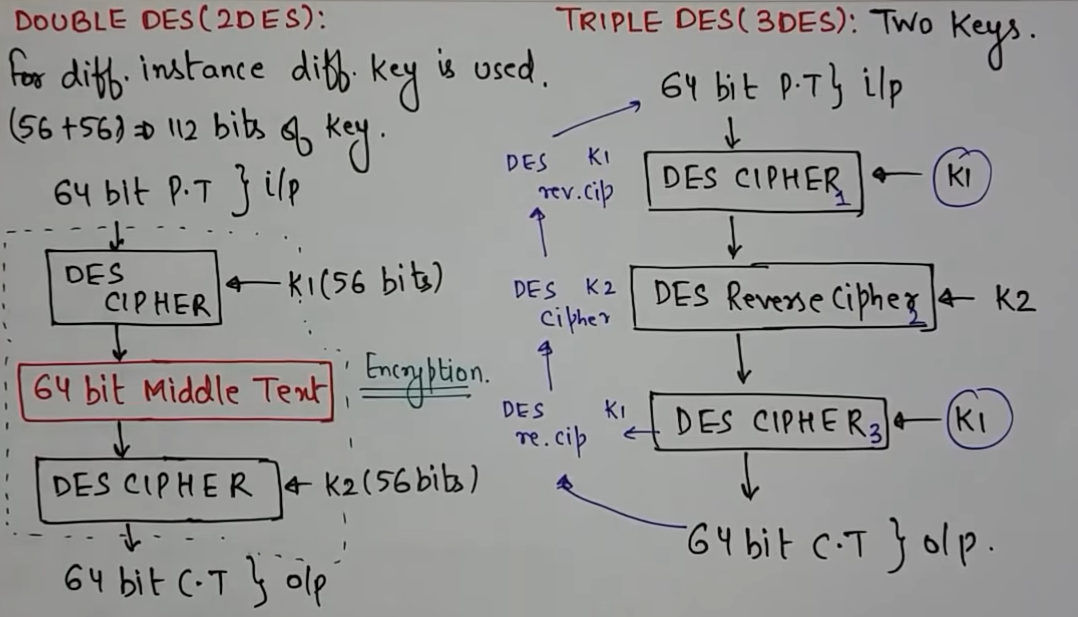 DOUBLE DES(2DES):
For diff. instance diff. key is used.
(56+56) ⇒ 112 bits of key.
64 bit P.T } i/p
DES
CIPHER
K1(56 bits)
64 bit Middle Text
Encryption.
DES CIPHER
K2(56bits)
64 bit C.T } o/p
TRIPLE DES(3DES): Two Keys.
64 bit P.T } i/p
DES CIPHER1
K1
DES Reverse Cipher2
K2
DES CIPHER3
K1
64 bit C.T } o/p.
DES K1
rev.cip
DES K2
Cipher
DES K1
re.cip